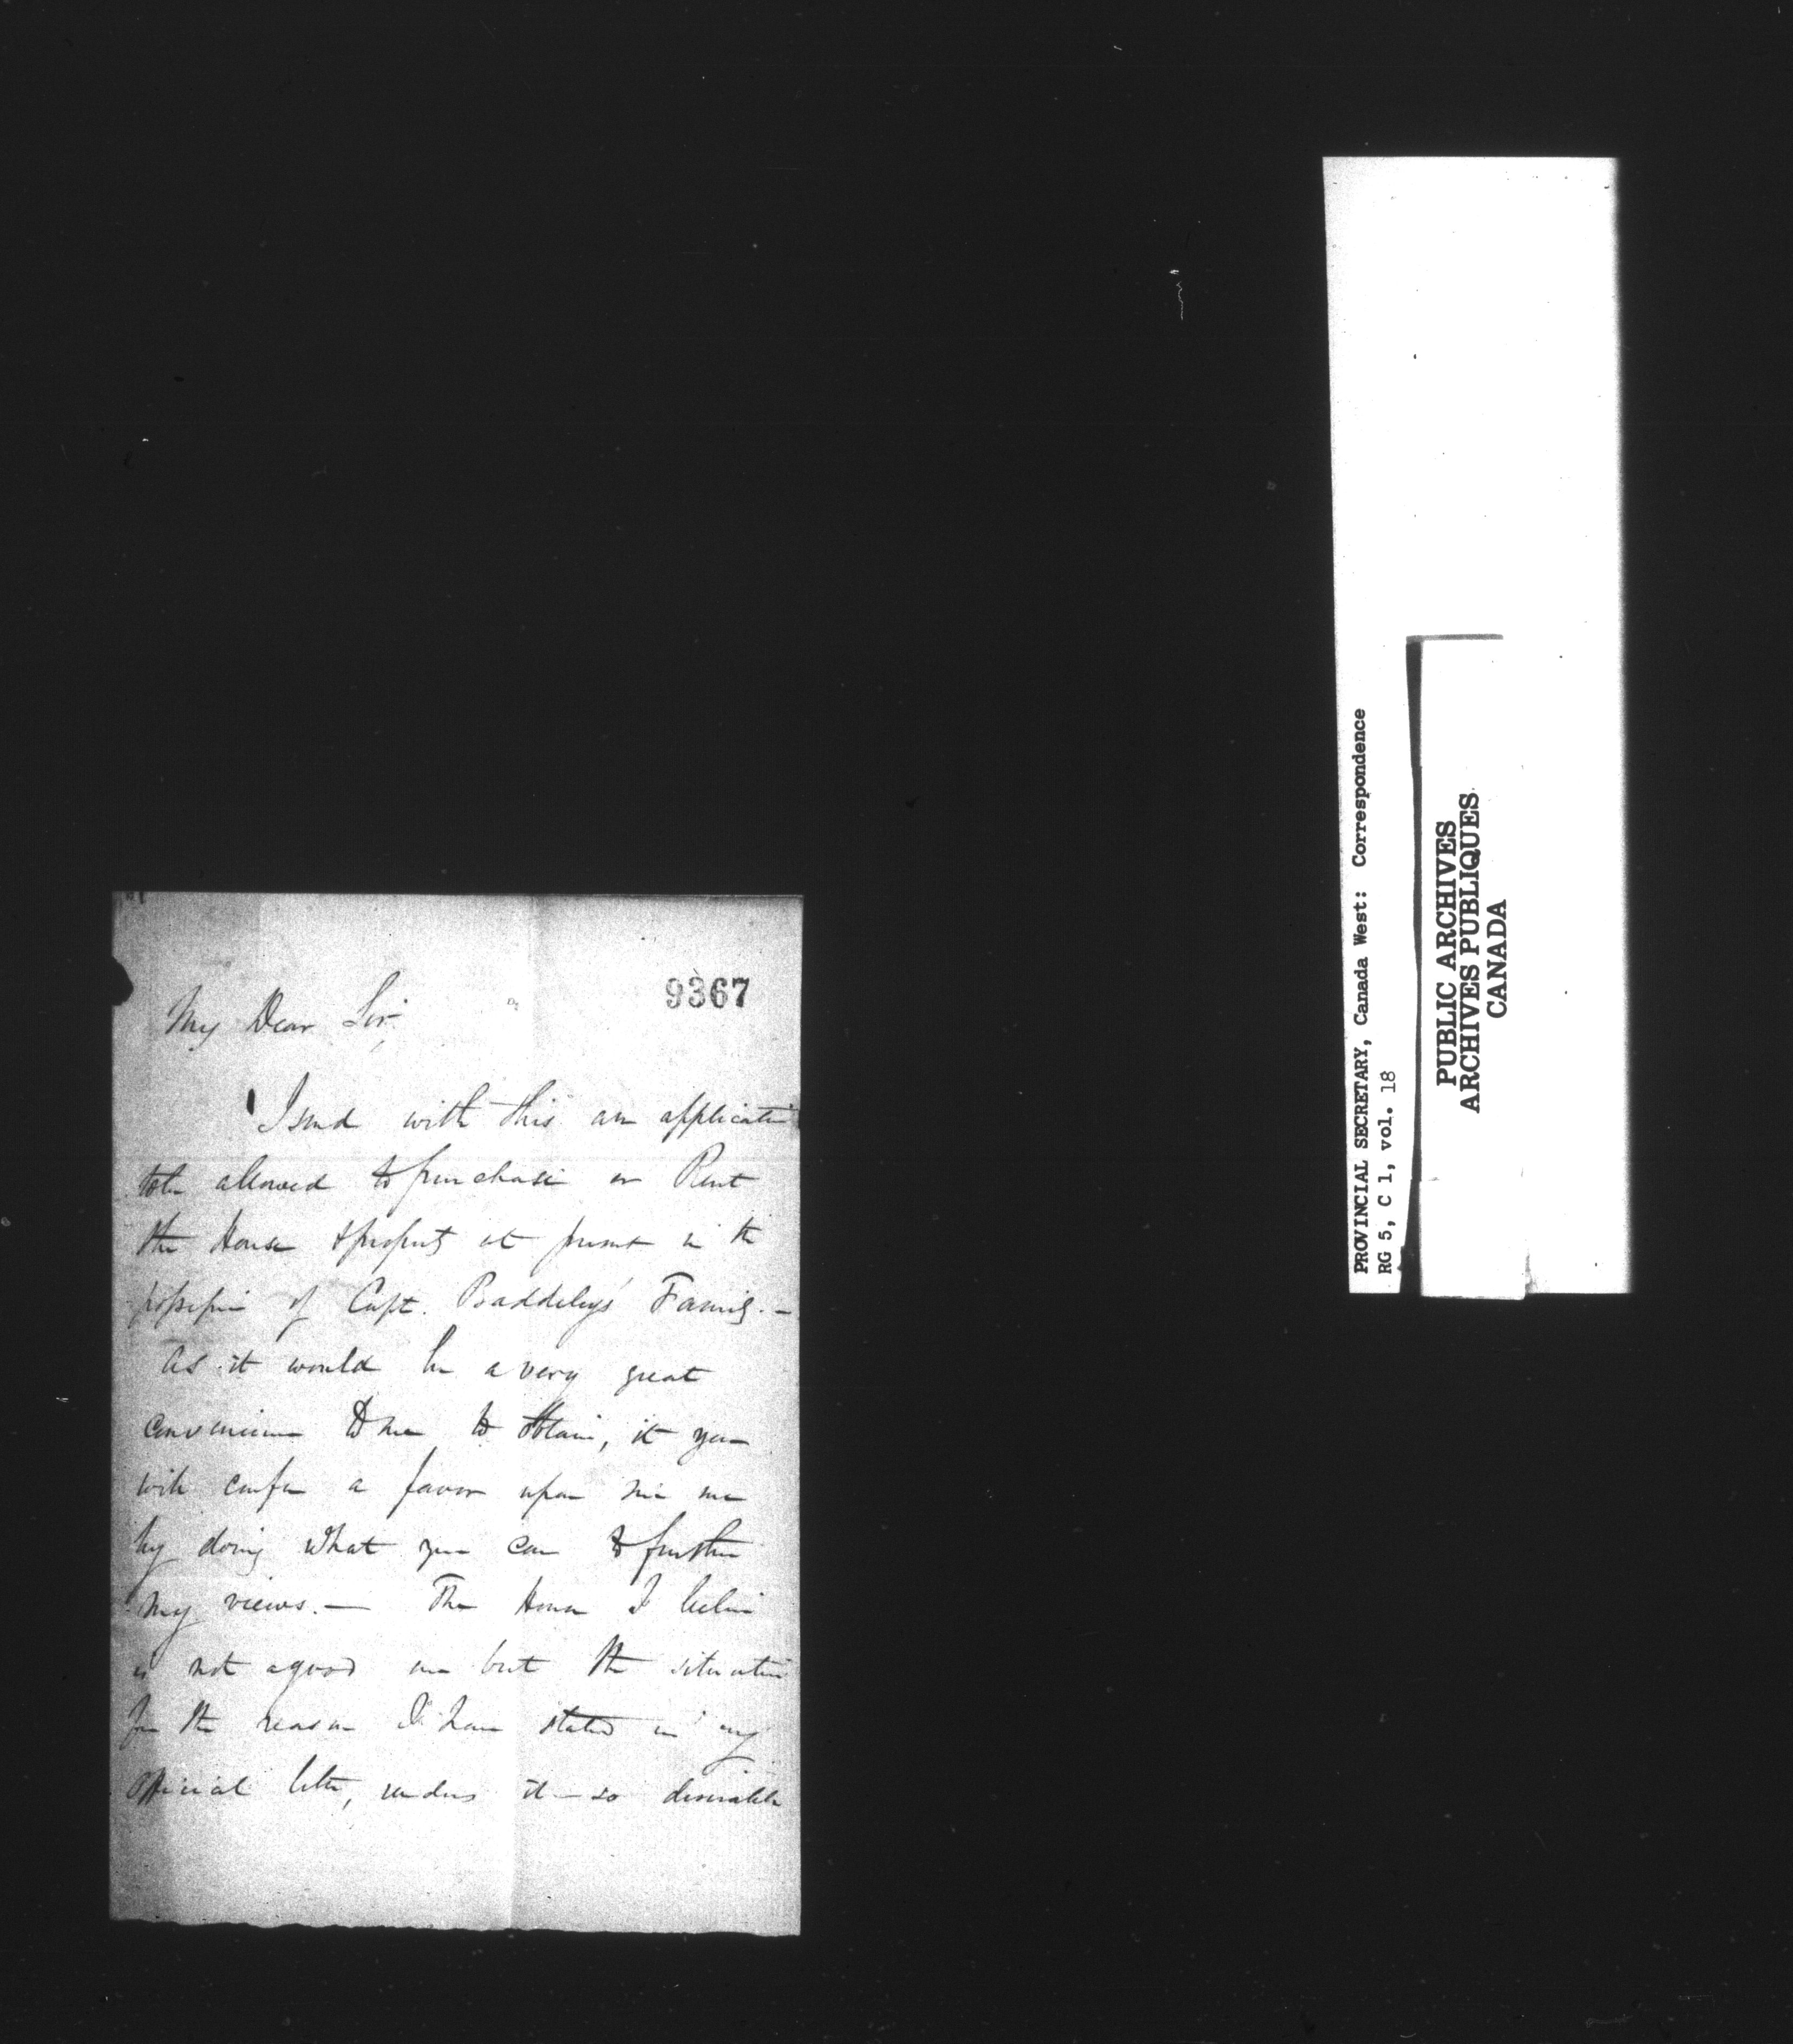 9367
My Dear Sir,
I send with this an application
to be allowed to purchase or Rent
the House & property at present in the
possession of Capt. Baddeley's Family. —
As it would be a very great
convenience to me to obtain, it you
will confer a favor upon me
by doing what you can to further
my views. — The House I believe
is not a good one but the situation
for the reason I have stated in my
official letter, renders it so desirable
PROVINCIAL SECRETARY, Canada West: Correspondence
RG 5, C 1, vol. 18
PUBLIC ARCHIVES
ARCHIVES PUBLIQUES
CANADA